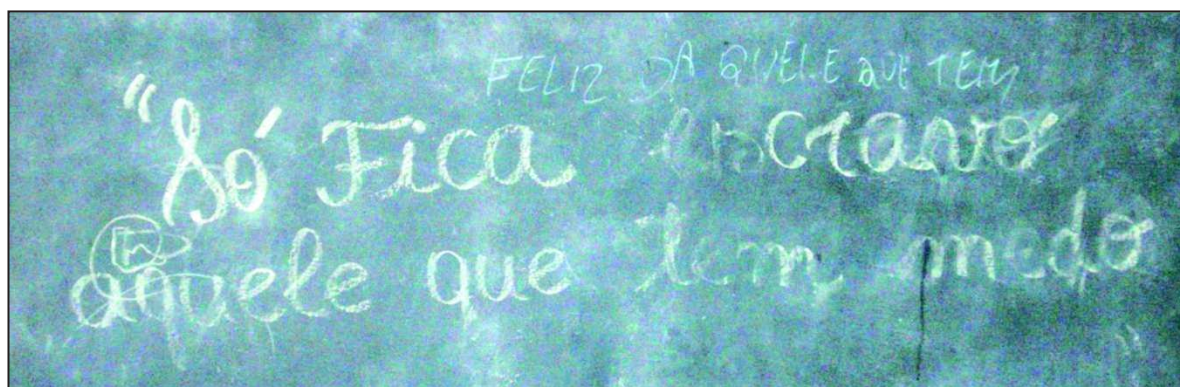 FELIZ DA QUELE QUE TEM
"Só Fica escravo
aquele que tem medo